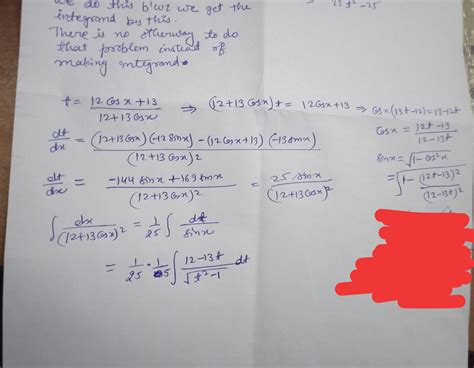 we do this b'coz we get the
integrand by this.
There is no otherway to do
that problem instead of
making integrand.
25t²-25
t = 12 cos x + 13 / 12 + 13 cos x ⇒ (12 + 13 cos x) t = 12 cos x + 13 ⇒ cos x (13t - 12) = 13 - 12t
dt/dx = (12 + 13 cos x)(-12 sin x) - (12 cos x + 13)(-13 sin x) / (12 + 13 cos x)2
cos x = 12t - 13 / 12 - 13t
sin x = √1 - cos²x
= √1 - (12t - 13)² / (12 - 13t)²
dt/dx = -144 sin x + 169 sin x / (12 + 13 cos x)2 = 25 sin x / (12 + 13 cos x)2
∫ dx / (12 + 13 cos x)2 = 1/25 ∫ dt / sin x
= 1/25 · 1/5 ∫ 12 - 13t / √t² - 1 dt